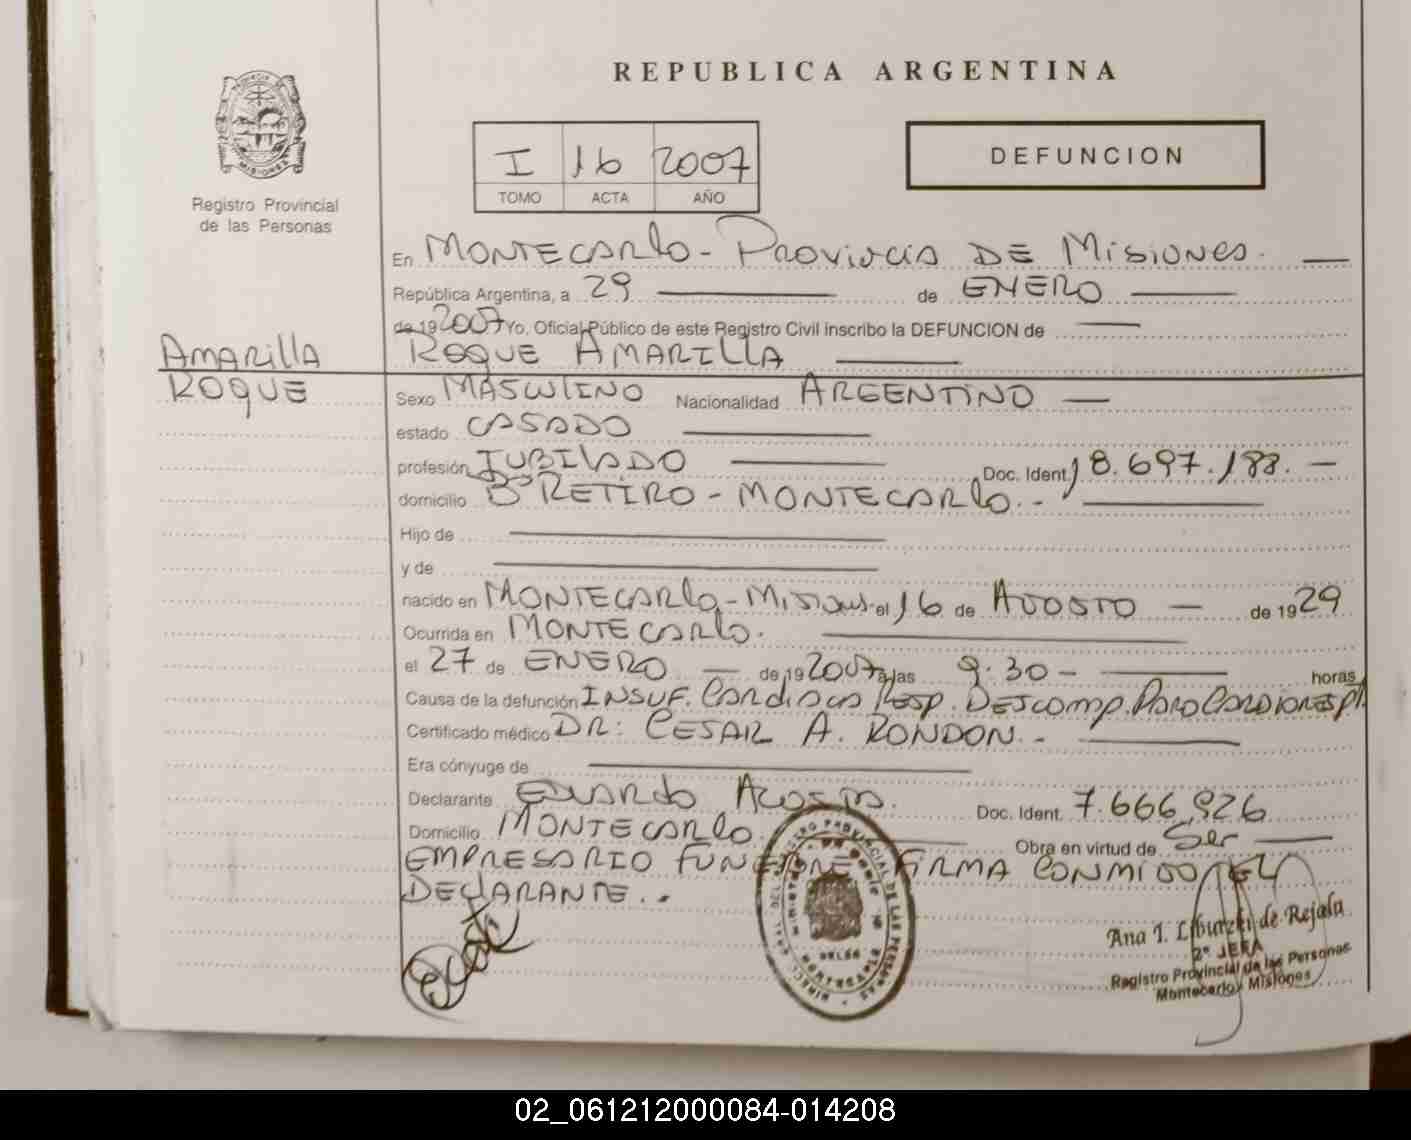 REPUBLICA ARGENTINA
PROVINCIA DE
MISIONES
Registro Provincial
de las Personas
I 16 2007
TOMO ACTA AÑO
DEFUNCION
En MONTECARLO - PROVINCIA DE MISIONES. —
República Argentina, a 29 — de ENERO —
de 19 2007 Yo, Oficial Público de este Registro Civil inscribo la DEFUNCION de —
AMARILLA ROQUE AMARILLA —
ROQUE
Sexo MASCULINO Nacionalidad ARGENTINO —
estado CASADO —
profesión JUBILADO — Doc. Ident. 8.697.188. —
domicilio Bº RETIRO - MONTECARLO. - —
Hijo de —
y de —
nacido en MONTECARLO - MISIONES el 16 de AGOSTO — de 1929
Ocurrida en MONTECARLO. —
el 27 de ENERO — de 19 2007 a las 9.30 - — horas
Causa de la defunción INSUF. CARDIACA RESP. DESCOMP. PARO CARDIORESP.
Certificado médico DR: CESAR A. RONDON. - —
Era cónyuge de —
Declarante EDUARDO ACOSTA.
Doc. Ident. 7.666.926
Domicilio MONTECARLO. — Obra en virtud de SER —
EMPRESARIO FUNEBRE FIRMA CONMIGO EL
DECLARANTE. -
REGISTRO PROVINCIAL DE LAS PERSONAS
MONTECARLO
Ana I. de Rejala
2º JEFA
Registro Provincial de las Personas
Montecarlo Misiones
02_061212000084-014208